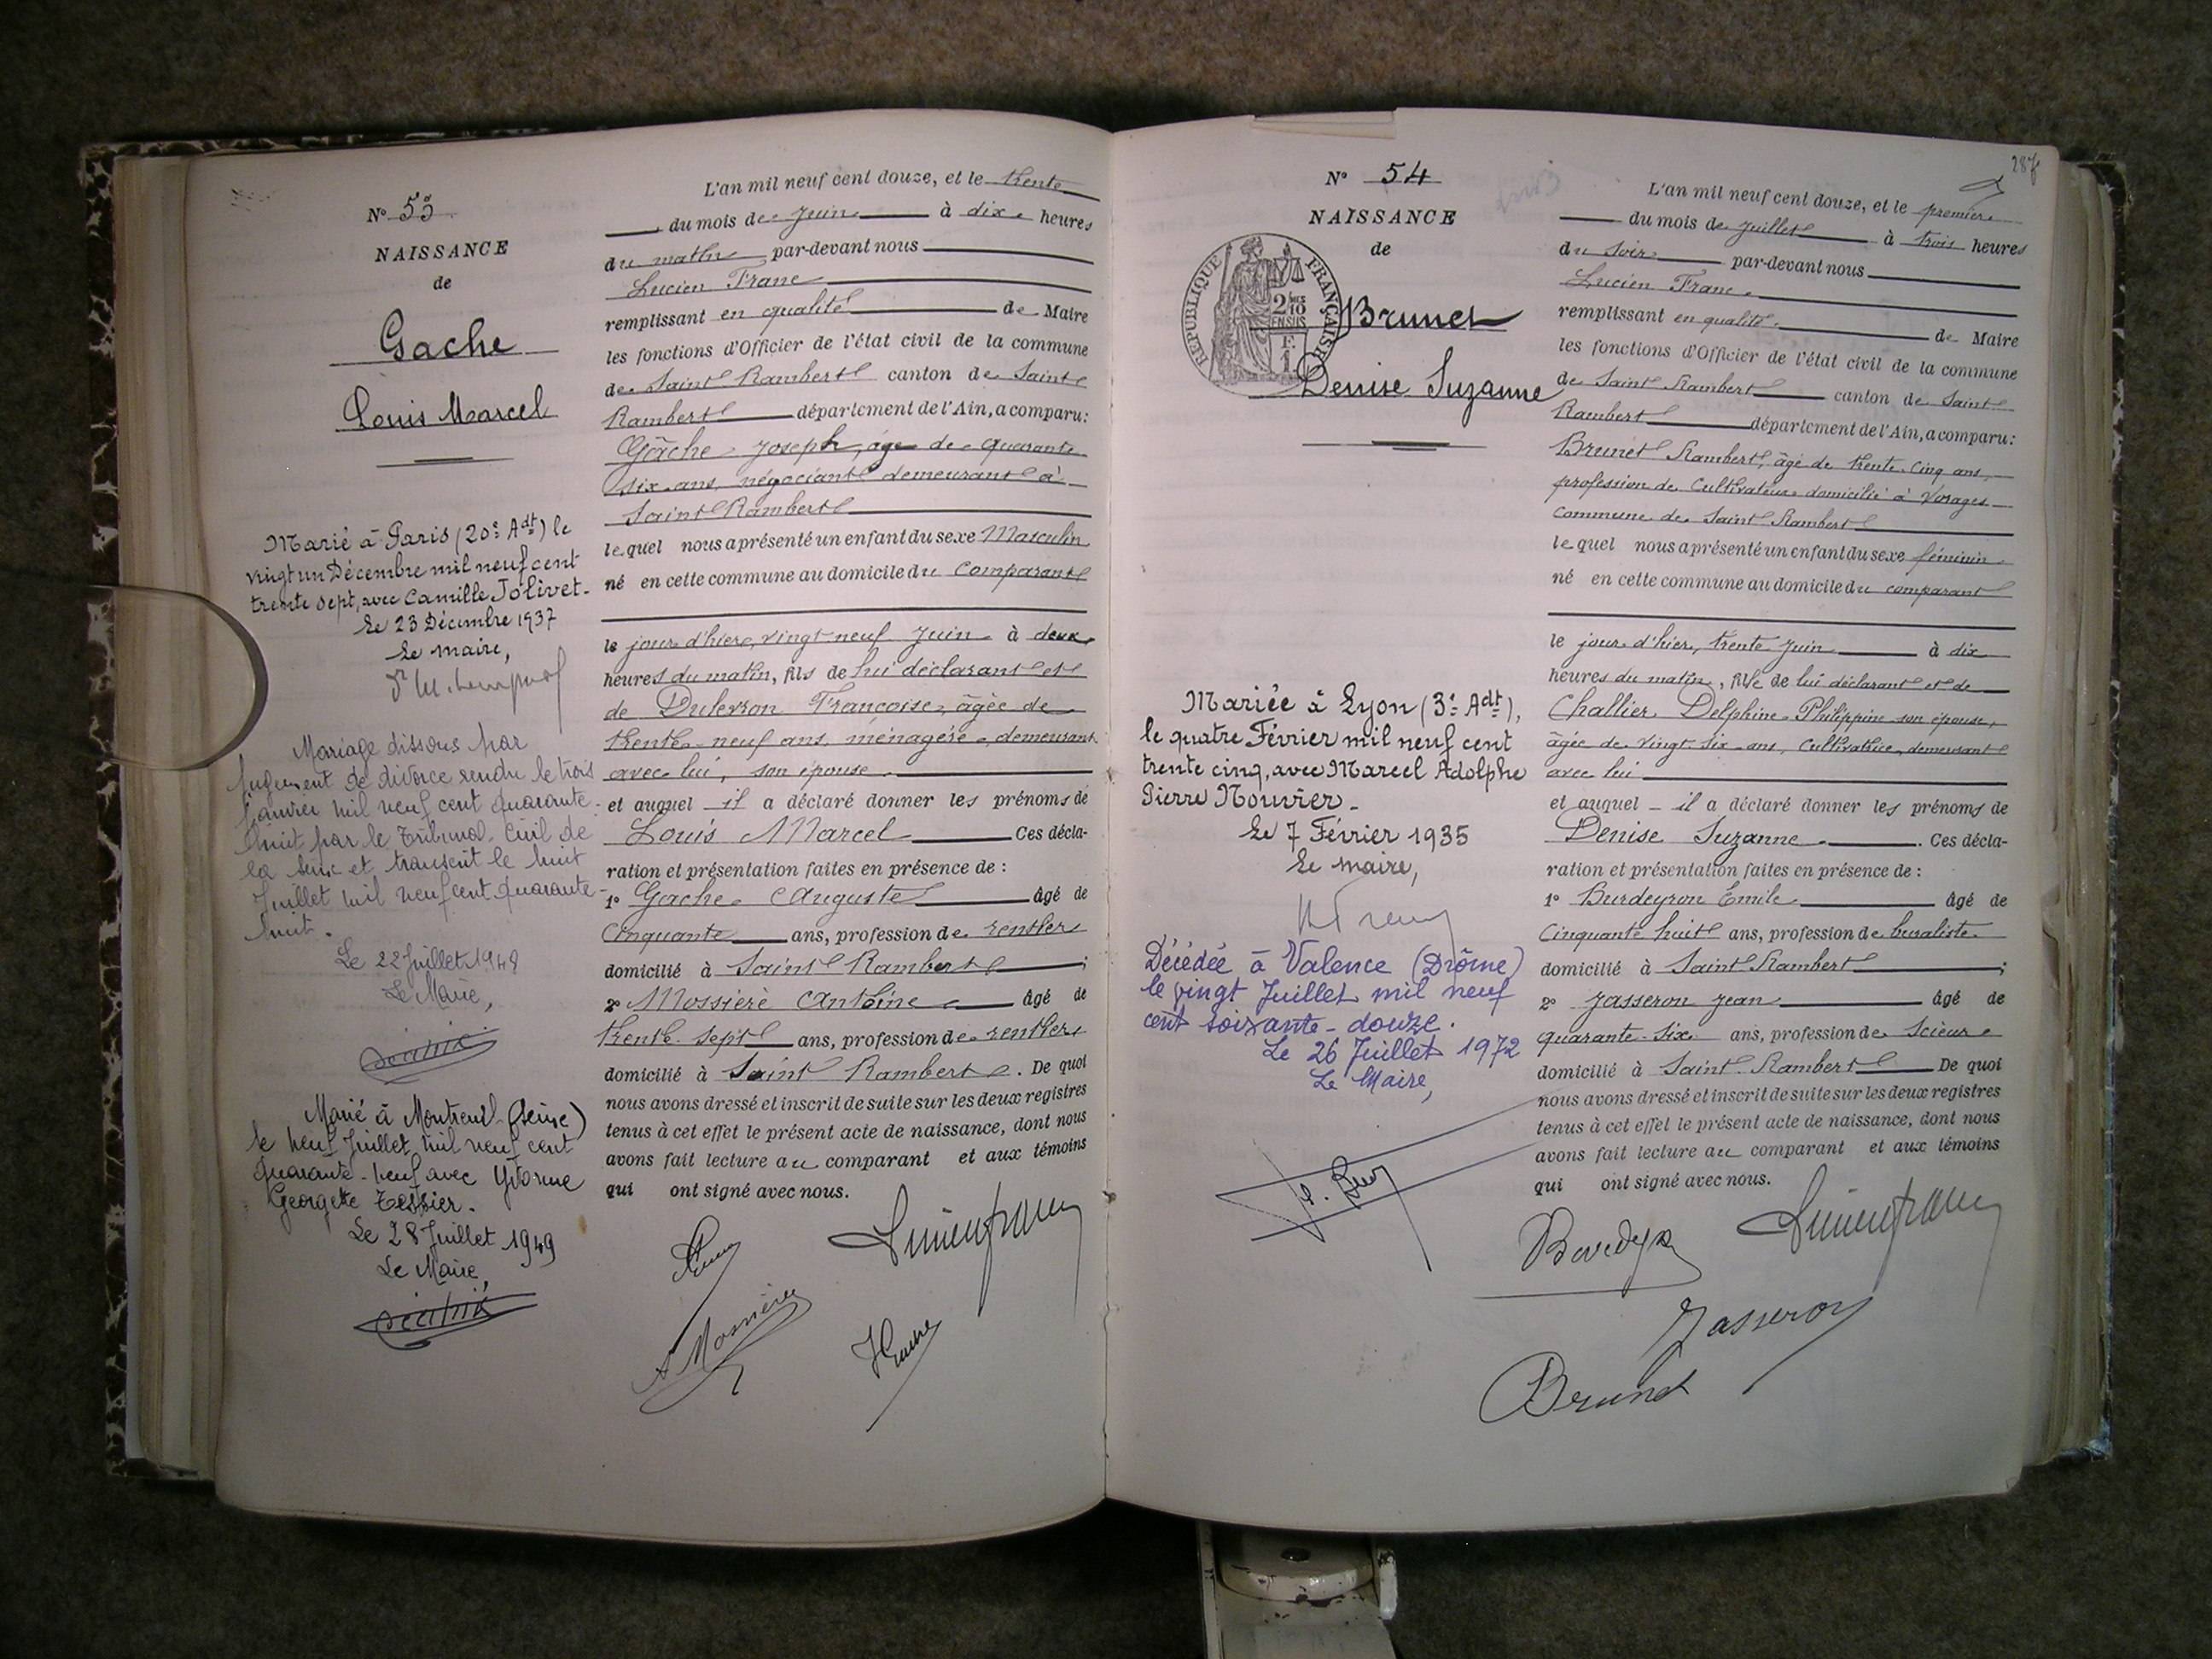 N° 53
NAISSANCE
de
Gache
Louis Marcel
Marié à Paris (20e Adt) le
vingt un Décembre mil neuf cent
trente sept, avec Camille Jolivet-
Le 23 Décembre 1937
Le maire,
Mariage dissous par
jugement de divorce rendu le trois
janvier mil neuf cent quarante-
huit par le Tribunal Civil de
la Seine et transcrit le huit
Juillet mil neuf cent quarante-
huit.
Le 22 Juillet 1948
Le Maire,
Marié à Montreuil (Seine)
le neuf Juillet mil neuf cent
quarante-neuf avec Yvonne
Georgette Tessier.
Le 28 Juillet 1949
Le Maire,
L'an mil neuf cent douze, et le trente
du mois de Juin à dix heures
du matin par-devant nous
Lucien Franc
remplissant en qualité de Maire
les fonctions d'Officier de l'état civil de la commune
de Saint Rambert canton de Saint
Rambert département de l'Ain, a comparu:
Gâche Joseph, âge de quarante
six ans, négociant demeurant à
Saint Rambert
lequel nous a présenté un enfant du sexe Masculin
né en cette commune au domicile du comparant
le jour d'hier, vingt-neuf Juin à deux
heures du matin, fils de lui déclarant et
de Dulevron Françoise, âgée de
trente-neuf ans, ménagère, demeurant
avec lui, son épouse.
et auquel il a déclaré donner les prénoms de
Louis Marcel Ces décla-
ration et présentation faites en présence de :
1° Gache Auguste âgé de
Cinquante ans, profession de rentier
domicilié à Saint Rambert ;
2° Mossière Antoine âgé de
trente-sept ans, profession de rentier
domicilié à Saint Rambert. De quoi
nous avons dressé et inscrit de suite sur les deux registres
tenus à cet effet le présent acte de naissance, dont nous
avons fait lecture au comparant et aux témoins
qui ont signé avec nous.
Lucien franc
A Mossière
287
N° 54
NAISSANCE
de
RÉPUBLIQUE FRANÇAISE
2/10
EN SUS
F.
1
Brunet
Denise Suzanne
Mariée à Lyon (3e Adt),
le quatre Février mil neuf cent
trente cinq, avec Marcel Adolphe
Pierre Nouvier-
Le 7 Février 1935
Le maire,
Décédée à Valence (Drôme)
le vingt Juillet mil neuf
cent soixante-douze.
Le 26 Juillet 1972
Le Maire,
L'an mil neuf cent douze, et le premier
du mois de Juillet à trois heures
du soir par-devant nous
Lucien Franc
remplissant en qualité de Maire
les fonctions d'Officier de l'état civil de la commune
de Saint Rambert canton de Saint
Rambert département de l'Ain, a comparu:
Brunet Rambert, âgé de trente-cinq ans,
profession de Cultivateur domicilié à Vorages
commune de Saint Rambert
lequel nous a présenté un enfant du sexe féminin
né en cette commune au domicile du comparant
le jour d'hier, trente Juin à dix
heures du matin, fille de lui déclarant et de
Challier Delphine Philippine son épouse,
âgée de vingt-six ans, Cultivatrice, demeurant
avec lui
et auquel il a déclaré donner les prénoms de
Denise Suzanne. Ces décla-
ration et présentation faites en présence de :
1° Burdeyron Emile âgé de
Cinquante huit ans, profession de buraliste
domicilié à Saint Rambert ;
2° Jasseron Jean âgé de
quarante-six ans, profession de Scieur
domicilié à Saint Rambert De quoi
nous avons dressé et inscrit de suite sur les deux registres
tenus à cet effet le présent acte de naissance, dont nous
avons fait lecture au comparant et aux témoins
qui ont signé avec nous.
Lucien franc
Jasseron
Brunet